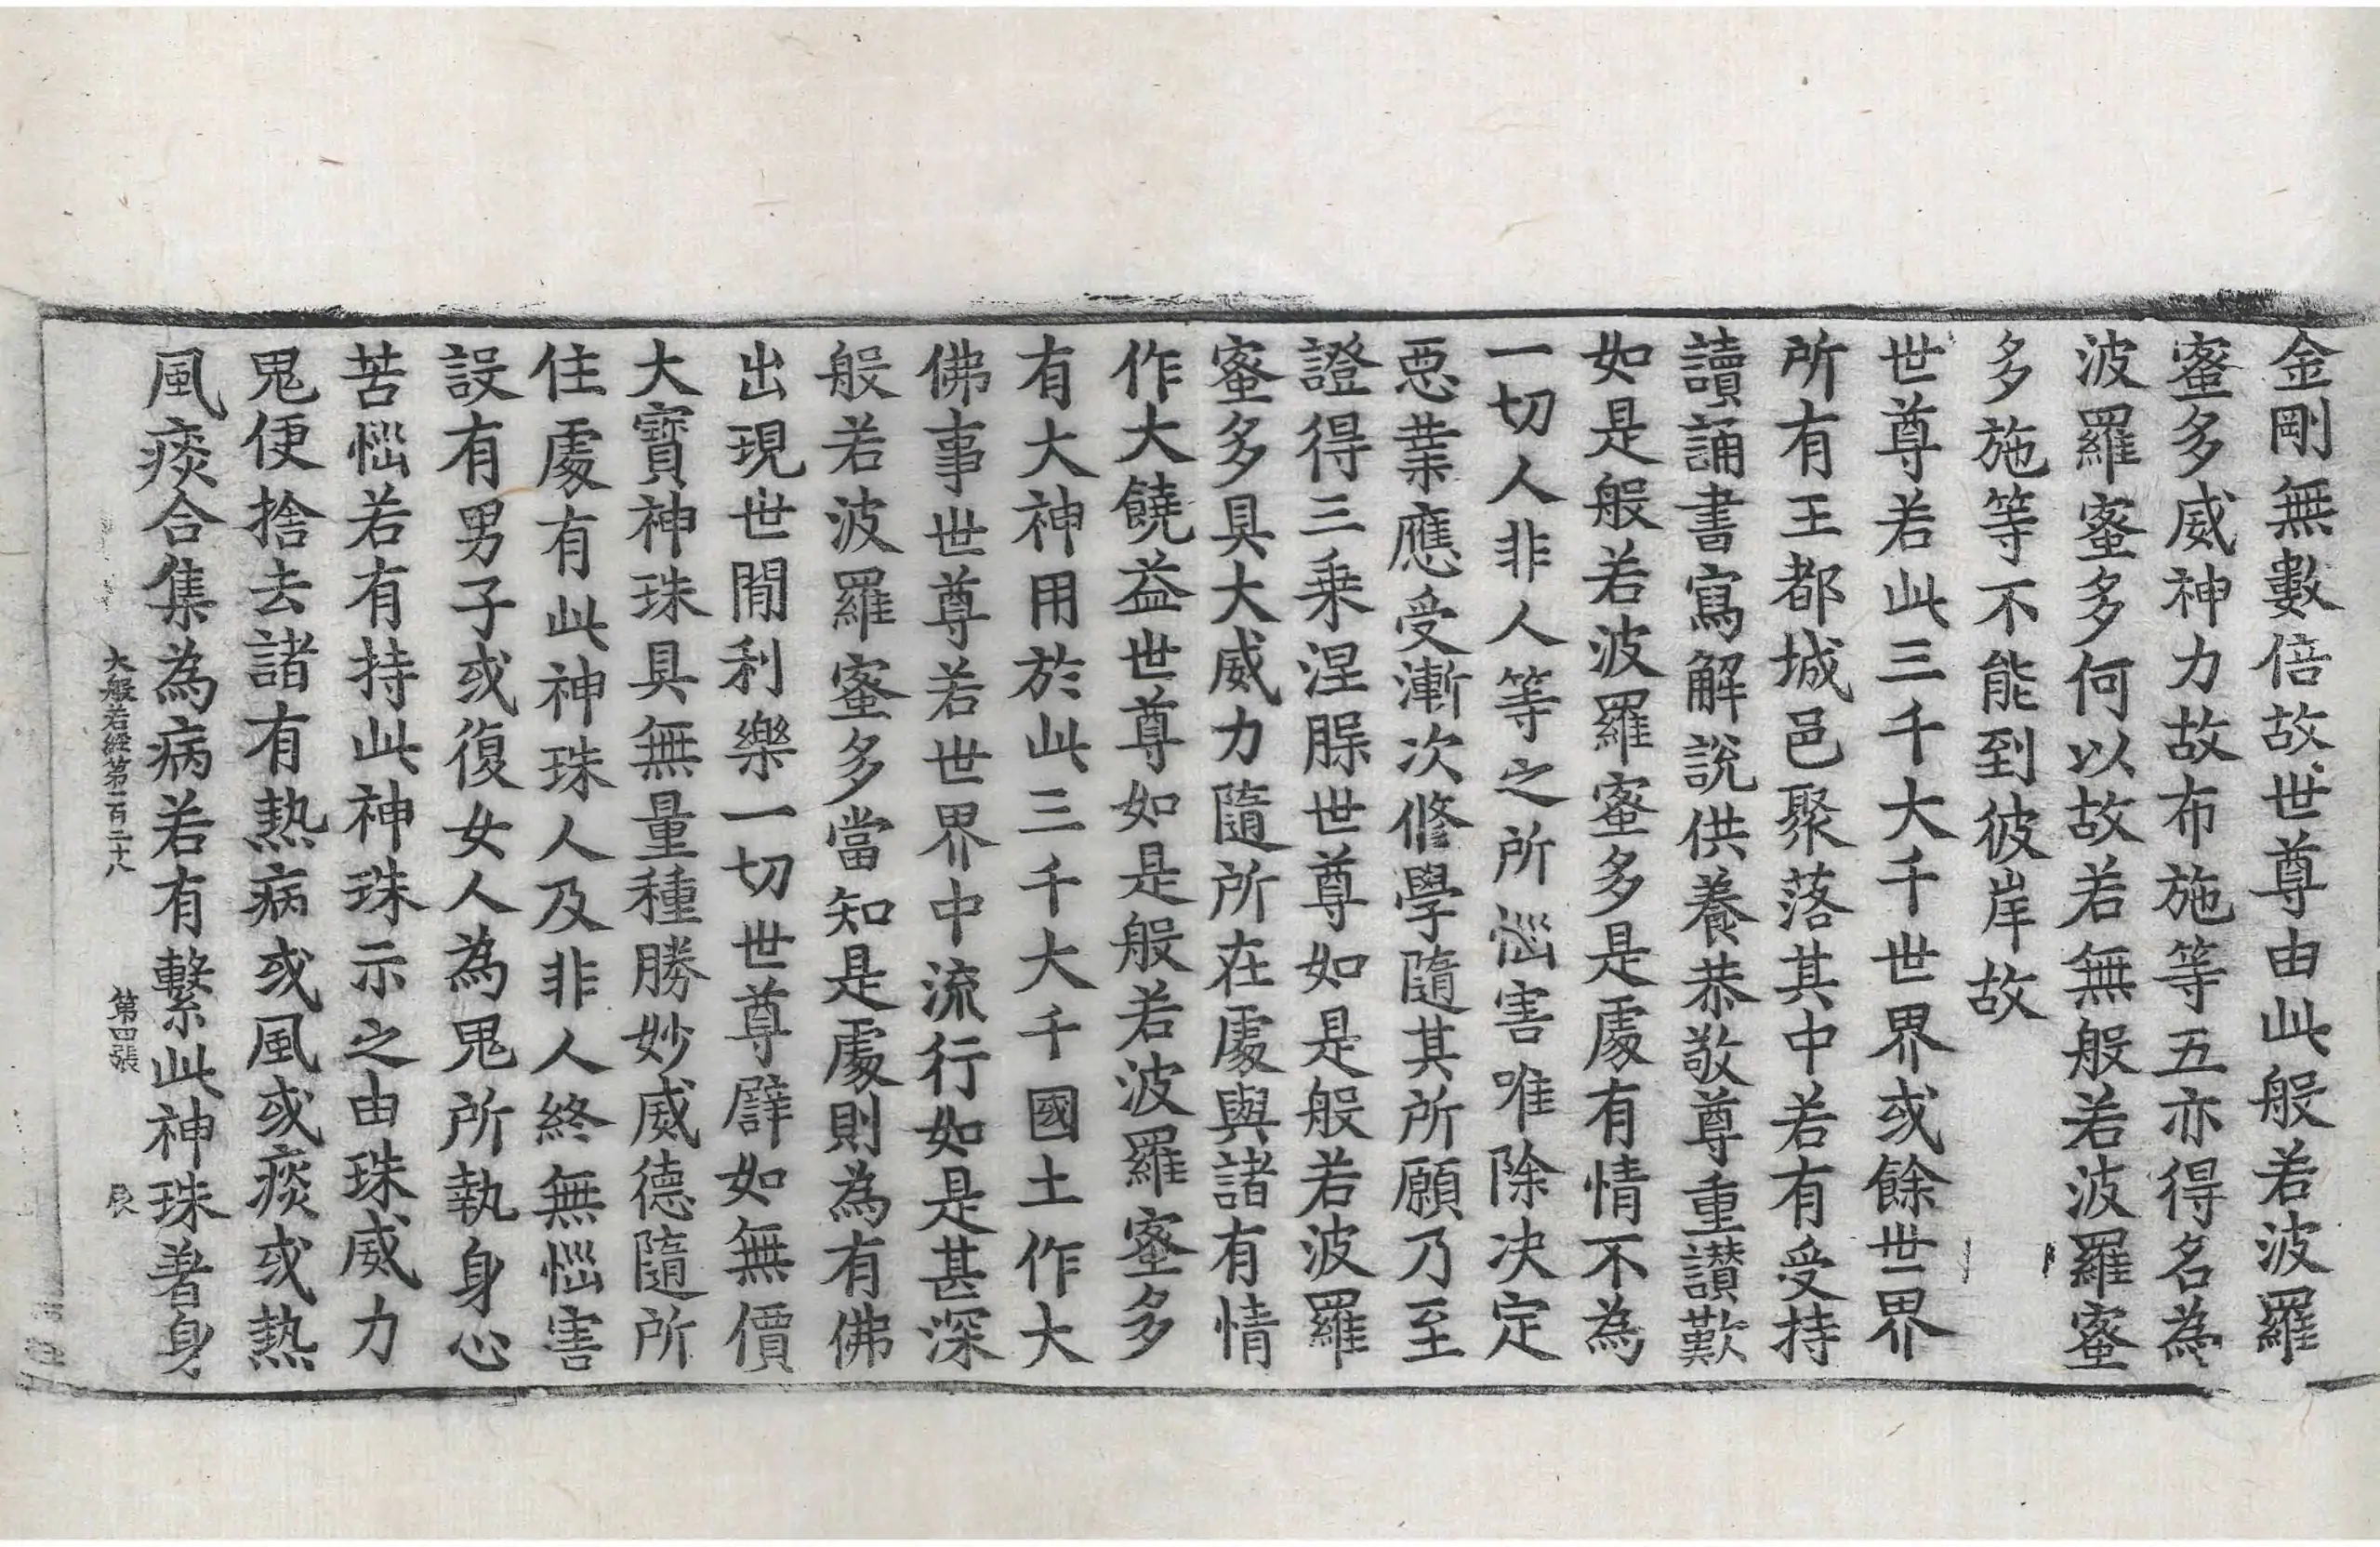 金剛無數倍故世尊由此般若波羅
蜜多威神力故布施等五亦得名為
波羅蜜多何以故若無般若波羅蜜
多施等不能到彼岸故
世尊若此三千大千世界或餘世界
所有王都城邑聚落其中若有受持
讀誦書寫解說供養恭敬尊重讃歎
如是般若波羅蜜多是處有情不為
一切人非人等之所惱害唯除決定
惡業應受漸次修學隨其所願乃至
證得三乗涅槃世尊如是般若波羅
蜜多具大威力隨所在處與諸有情
作大饒益世尊如是般若波羅蜜多
有大神用於此三千大千國土作大
佛事世尊若世界中流行如是甚深
般若波羅蜜多當知是處則為有佛
出現世間利樂一切世尊譬如無價
大寶神珠具無量種勝妙威德隨所
住處有此神珠人及非人終無惱害
設有男子或復女人為鬼所執身心
苦惱若有持此神珠示之由珠威力
鬼便捨去諸有熱病或風或痰或熱
風痰合集為病若有繫此神珠著身
大般若經第一百二十八 第四張 辰